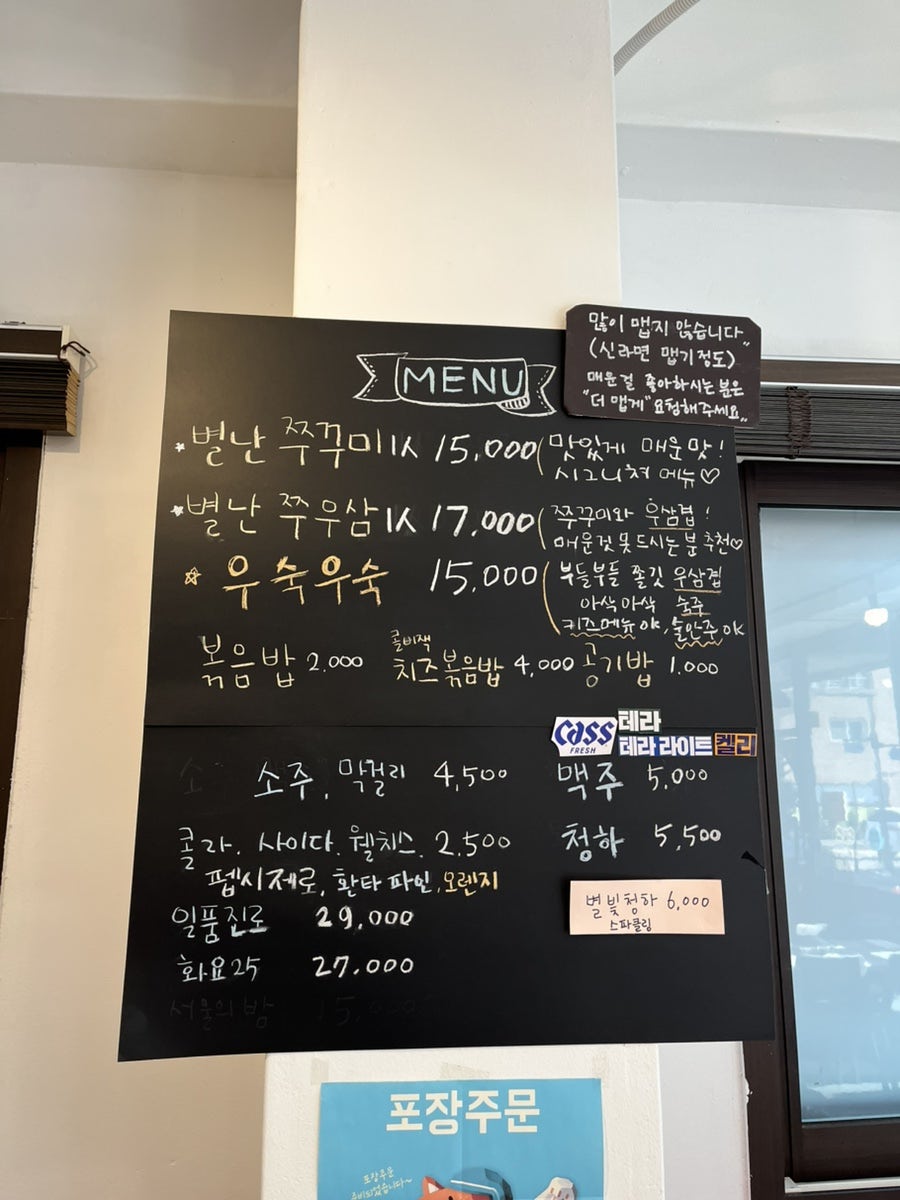 많이 맵지 않습니다"
(신라면 맵기정도)
매운걸 좋아하시는 분은
"더 맵게" 요청해주세요"
MENU
별난 쭈꾸미 1人 15,000 (맛있게 매운맛!
시그니쳐 메뉴♡
별난 쭈우삼 1人 17,000 (쭈꾸미와 우삼겹!
매운것 못드시는 분 추천♡
우숙우숙 15,000 (부들부들 쫄깃 우삼겹
아삭아삭 숙주
키즈메뉴 OK, 술안주 OK
볶음밥 2.000 콜비잭 치즈볶음밥 4,000 공기밥 1.000
Cass FRESH 테라
테라 라이트 켈리
소주, 막걸리 4,500 맥주 5,000
콜라. 사이다. 웰치스. 2,500 청하 5,500
펩시제로, 환타 파인, 오렌지
별빛청하 6,000
스파클링
일품진로 29,000
화요25 27.000
서울의밤 15,000
포장주문
포장주문